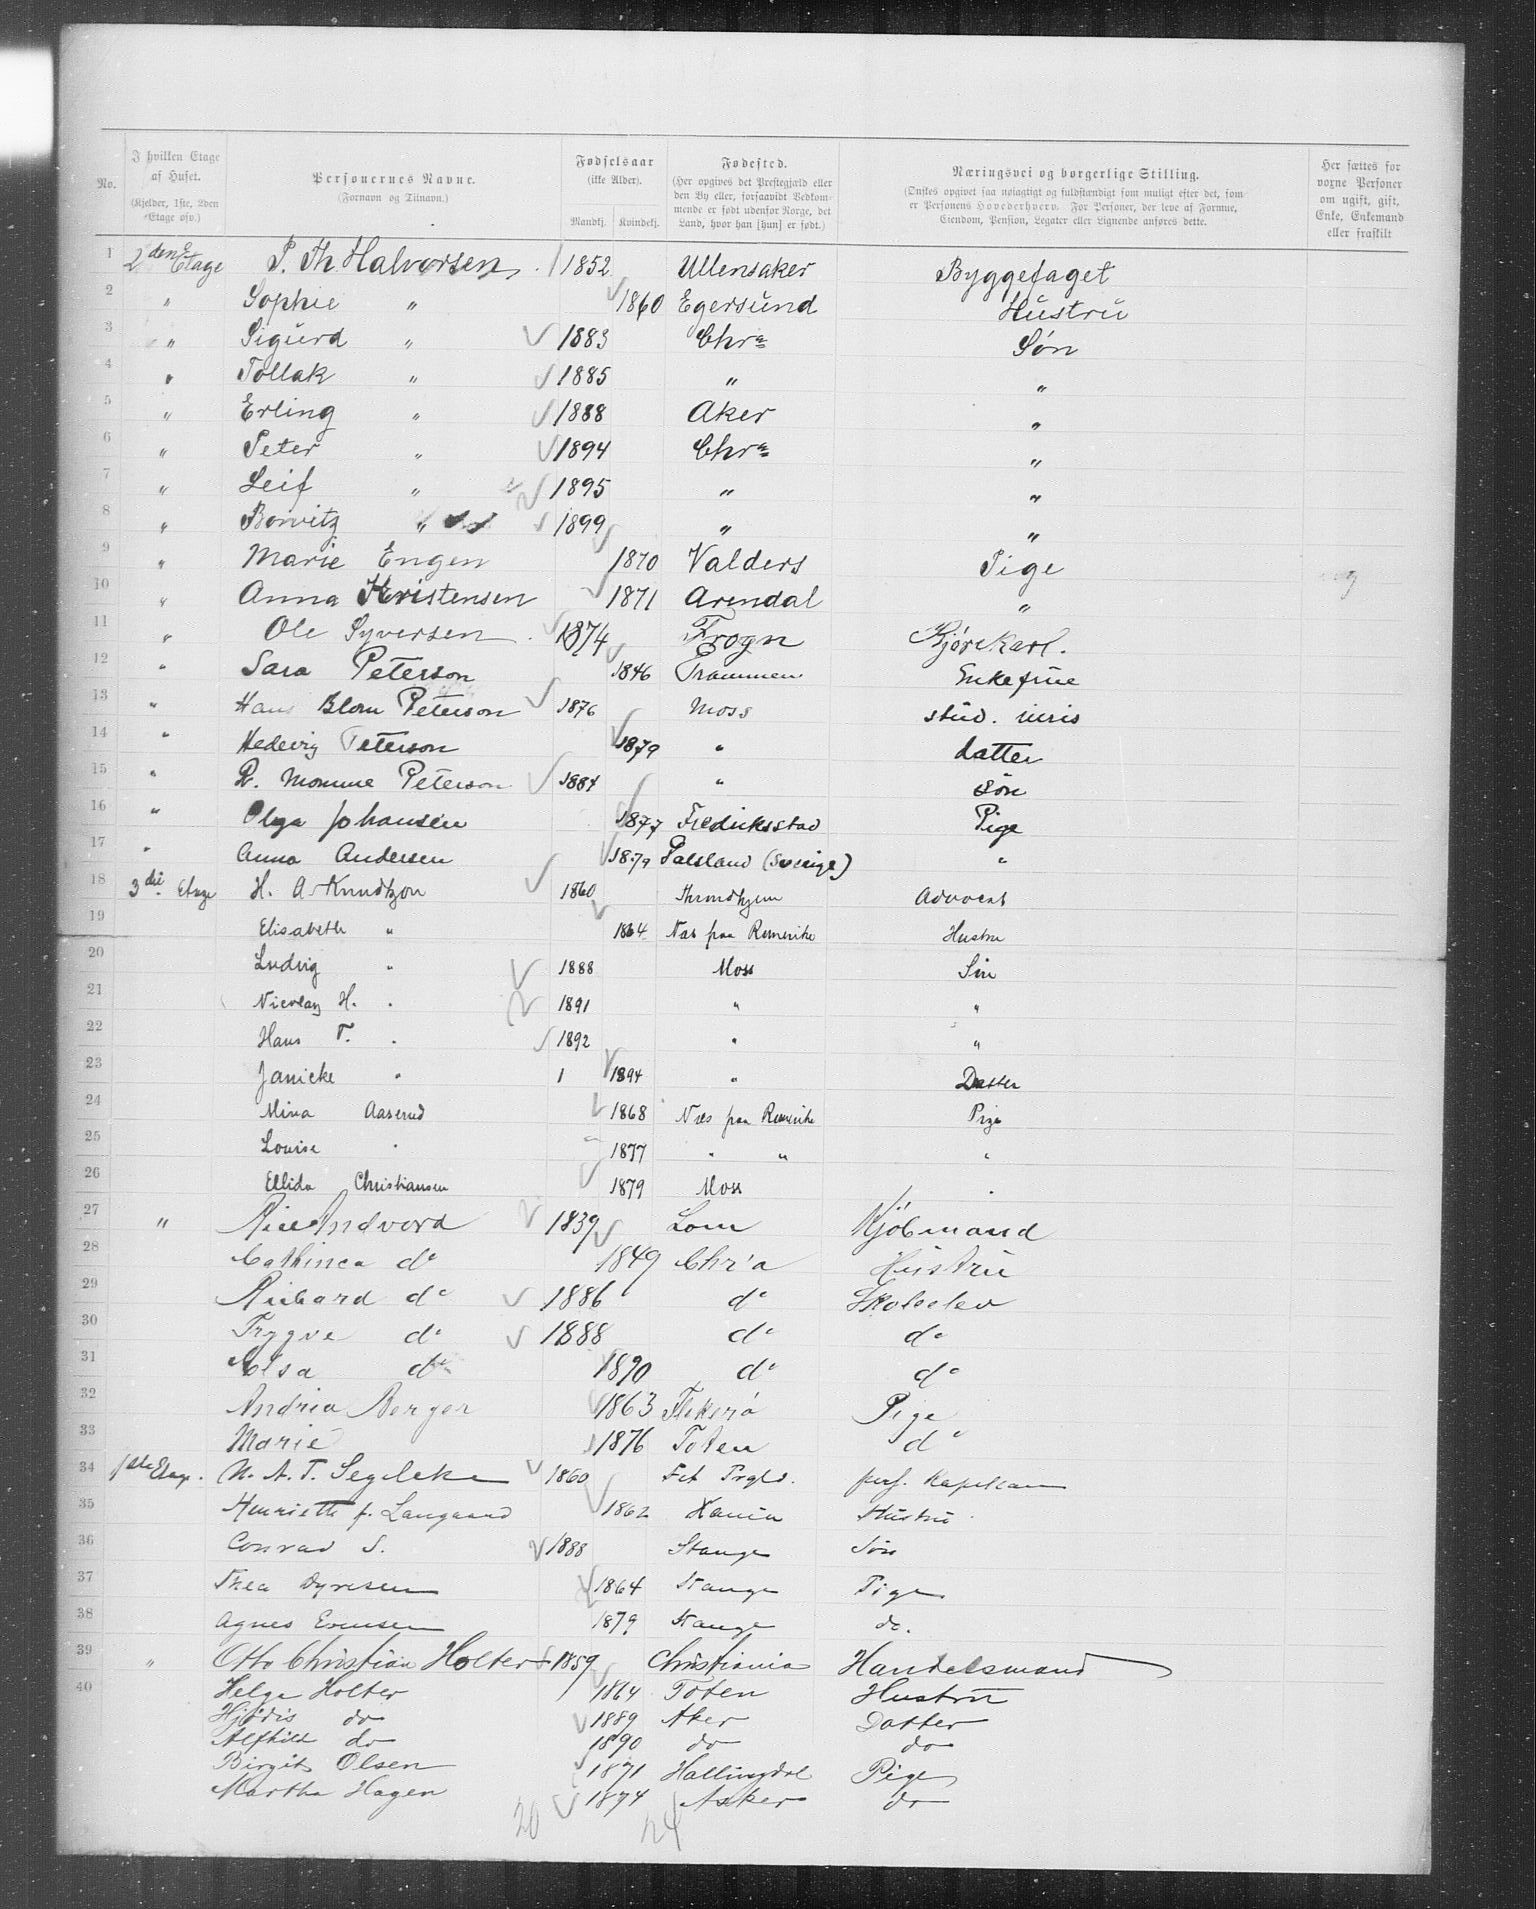 No. I hvilken Etage af Huset. (Kjelder, 1ste, 2den Etage osv.) Personernes Navne. (Fornavn og Tilnavn.) Fødselsaar (ikke Alder). Mandkj. Kvindekj. Fødested. (Her opgives det Prestegjæld eller den By eller, forsaavidt Vedkommende er født udenfor Norge, det Land, hvor han [hun] er født.) Næringsvei og borgerlige Stilling. (Ønskes opgivet saa nøiagtigt og fuldstændigt som muligt efter det, som er Personens Hovederhverv. For Personer, der leve af Formue, Eiendom, Pension, Legater eller Lignende anføres dette.) Her sættes for voxne Personer om ugift, gift, Enke, Enkemand eller fraskilt
1 2den Etage P. Th Halvorsen 1852 Ullensaker Byggefaget
2 " Sophie " 1860 Egersund Hustru
3 " Sigurd " 1883 Chra Søn
4 " Tollak " 1885 " "
5 " Erling " 1888 Aker "
6 " Peter " 1894 Chra "
7 " Leif " 1895 " "
8 " " 1899 " "
9 " Marie Engen 1870 Valders Pige
10 " Anna Kristensen 1871 Arendal "
11 " Ole Syversen 1874 Frogn Kjørekarl.
12 " Sara Peterson 1846 Enkefrue
13 " Hans Blom Peterson 1876 Moss stud. iuris
14 " Hedevig Peterson 1879 " datter
15 " R. Momme Peterson 1884 " søn
16 " Olga Johansen 1877 Fredriksstad Pige
17 " Anna Andersen 1879 (Sverige) "
18 3die Etage H. A Knudtzon 1860 Throndhjem Advocat
19 Elisabeth " 1864 Næs paa Romerike Hustru
20 Ludvig " 1888 Moss Søn
21 Nicolay H. " 1891 " "
22 Hans T. " 1892 " "
23 Janicke " 1 1894 " Datter
24 Mina Aaserud 1868 Næs paa Romerike Pige
25 Louise " 1877 " " "
26 Ellida Christiansen 1879 Moss "
27 " Andvord 1839 Lom Kjøbmand
28 Cathinca do 1849 Chr'a Hustru
29 Richard do 1886 do Skoleelev
30 Trygve do 1888 do do
31 Elsa do 1890 do do
32 Andrea Berger 1863 Flekerø Pige
33 Marie 1876 Toten do
34 1ste Etage. N. A. T. Segelcke 1860 Fet Prgld. pers. Kapellan
35 Henriette f. Langaard 1862 Hustru
36 Conrad S. 1888 Stange Søn
37 Thea Dyresen 1864 Stange Pige
38 Agnes Evensen 1879 Stange do.
39 " Otto Christian Holter 1859 Christiania Handelsmand
40 Helga Holter 1864 Toten Hustru
Hjørdis do 1889 Aker Datter
Alfhild do 1890 do do
Birgit Olsen 1871 Hallingdal Pige
Martha Hagen 1874 Asker do
20 24